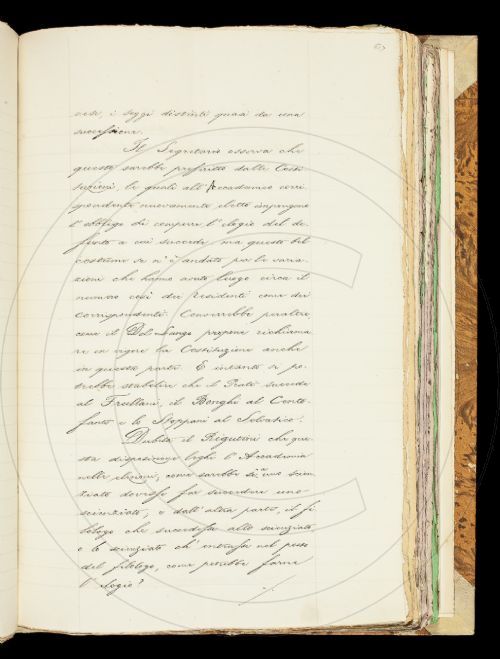 veste, i seggi distinti quasi da una
successione.
Il Segretario osserva che
questo sarebbe prescritto dalle Costi
tuzioni, le quali all'Accademico corri
spondente nuovamente eletto impongono
l'obbligo di comporre l'elogio del de-
funto a cui succede, ma questo bel
costume se n'è andato per le varia-
zioni che hanno avuto luogo circa il
numero così dei Residenti come dei
Corrispondenti. Converrebbe peraltro,
come il Del Lungo propone richiama
re in vigore la Costituzione anche
in questa parte. E intanto si po-
trebbe stabilire che il Prati succeda
al Frullani, il Bonghi al Cento-
fanti e lo Stoppani al Selvatico.
Dubita il Rigutini che que-
sta disposizione leghi l'Accademia
nelle elezioni, come sarebbe se a uno scien
ziato dovesse far succedere uno
scienziato, e dall'altra parte, il fi
lologo che succedesse allo scienziato,
e lo scienziato ch'entrasse nel posto
del filologo, come potrebbe farne
l'elogio?